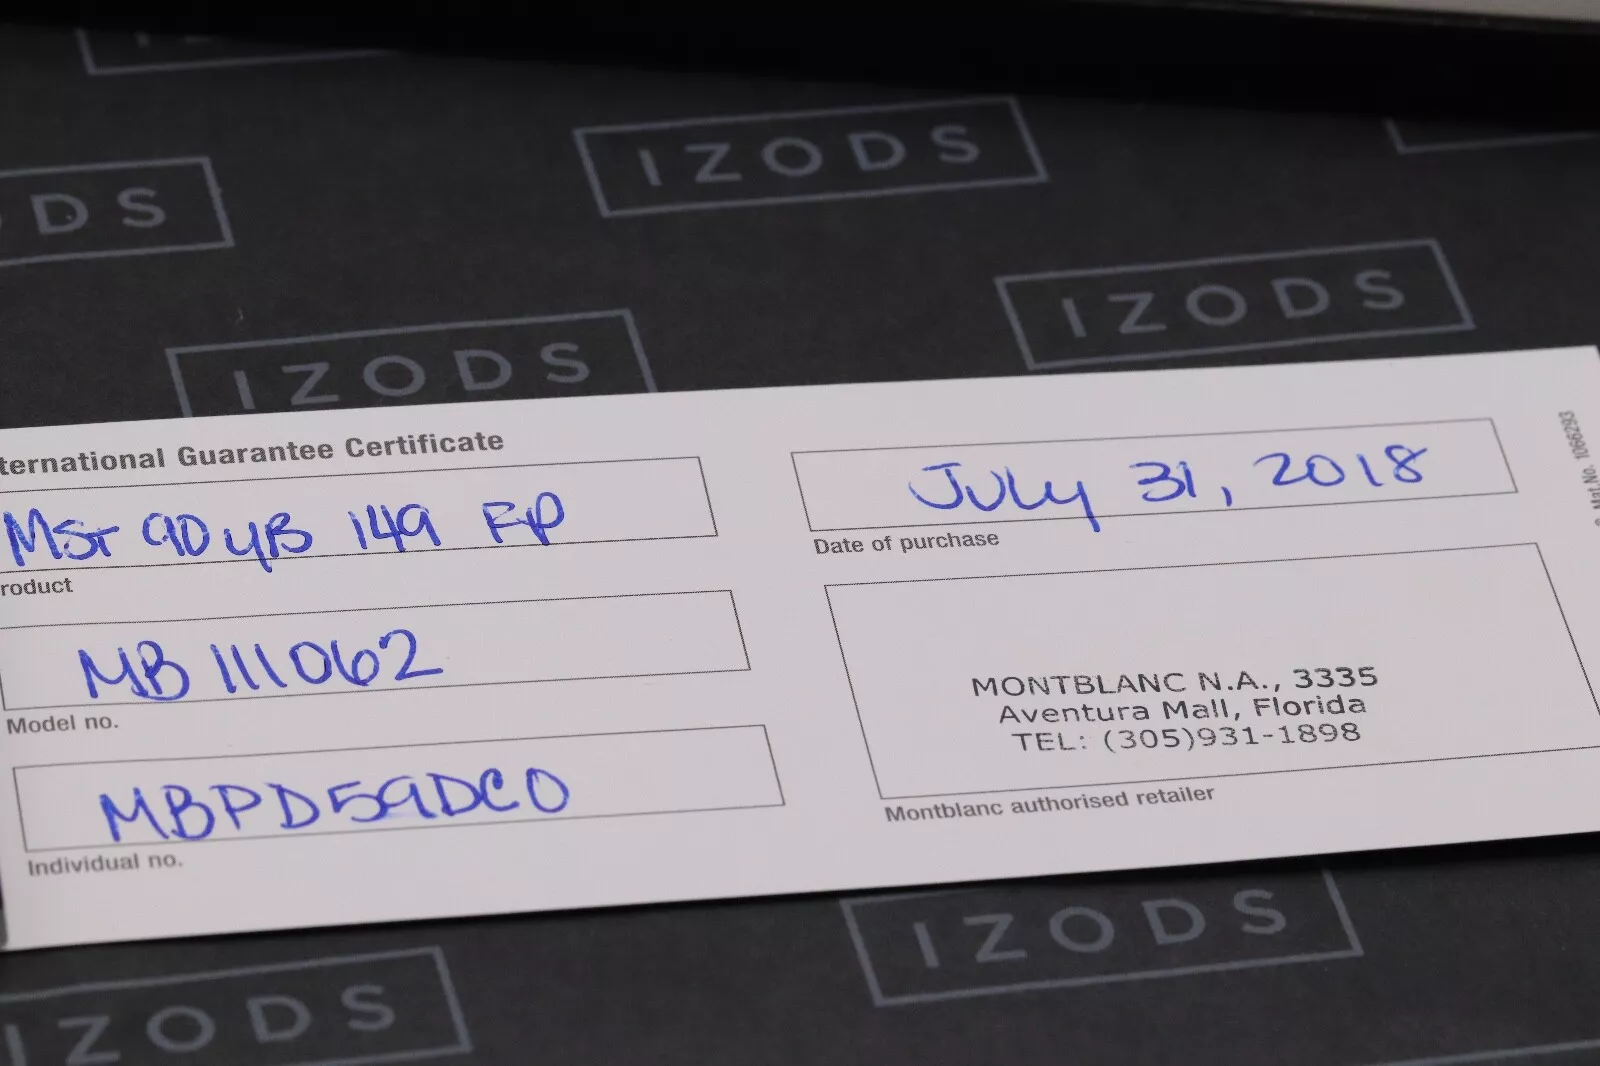 DS
IZODS
IZODS
IZODS
ternational Guarantee Certificate
MST 90 YB 149 FP
roduct
MB 111062
Model no.
MBPD59DCO
Individual no.
July 31, 2018
Date of purchase
MONTBLANC N.A., 3335
Aventura Mall, Florida
TEL: (305)931-1898
Montblanc authorised retailer
Mat.No. 1096293
IZODS
IZODS